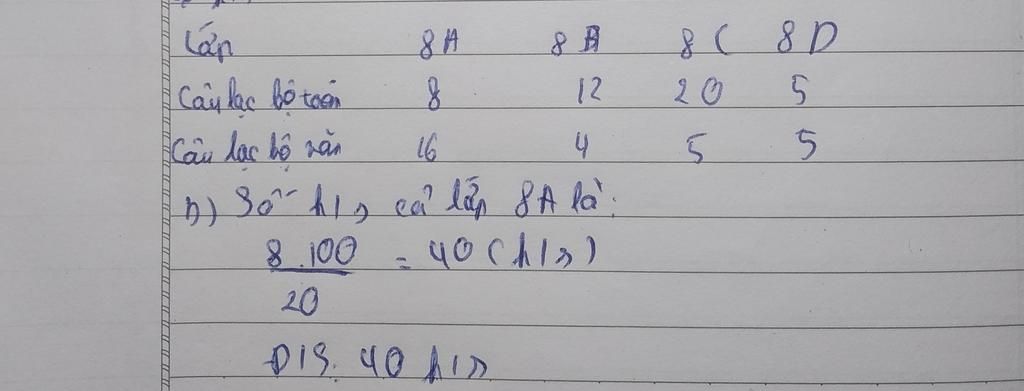 Lớp 8A 8B 8C 8D
Câu lạc bộ toán 8 12 20 5
Câu lạc bộ văn 16 4 5 5
b) Số h/s cả lớp 8A là:
8.100 = 40 (h/s)
20
Đ/S: 40 h/s